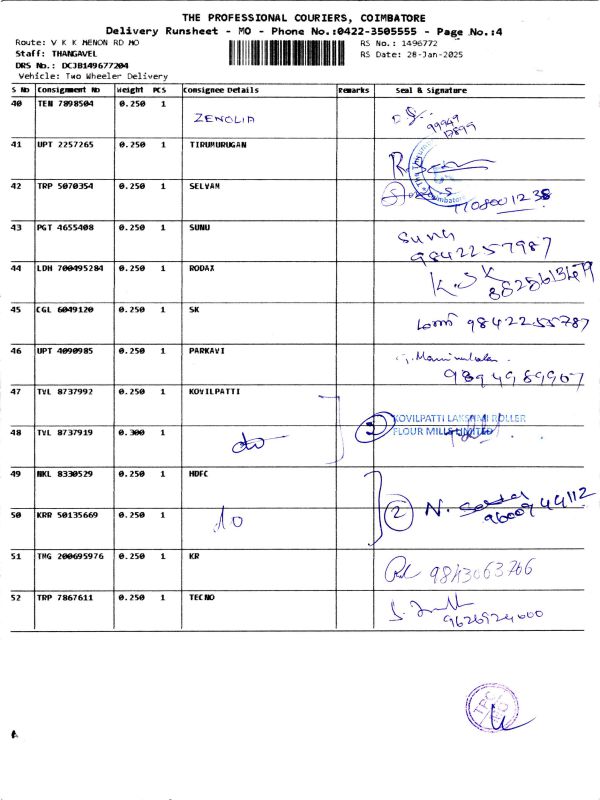 THE PROFESSIONAL COURIERS, COIMBATORE
Delivery Runsheet - MO - Phone No.:0422-3505555 - Page No.:4
Route: V K K MENON RD MO RS No.: 1496772
Staff: THANGAVEL RS Date: 28-Jan-2025
DRS No.: DCJB149677204
Vehicle: Two Wheeler Delivery
S No Consignment No Weight PCS Consignee Details Remarks Seal & Signature
40 TEN 7898504 0.250 1 ZENOLIA 99949
41 UPT 2257265 0.250 1 TIRUMURUGAN
42 TRP 5070354 0.250 1 SELVAM
43 PGT 4655408 0.250 1 SUNU Sunu 9842257987
44 LDH 700495284 0.250 1 RODAX K.SK
45 CGL 6049120 0.250 1 SK 9842255787
46 UPT 4090985 0.250 1 PARKAVI 9894989907
47 TVL 8737992 0.250 1 KOVILPATTI KOVILPATTI LAKSHMI ROLLER
48 TVL 8737919 0.300 1 do FLOUR MILLS LIMITED
49 NKL 8330529 0.250 1 HDFC
50 KRR 50135669 0.250 1 do 2 N. 9600944112
51 TMG 200695976 0.250 1 KR 9843063766
52 TRP 7867611 0.250 1 TECNO 9626924600
TPC